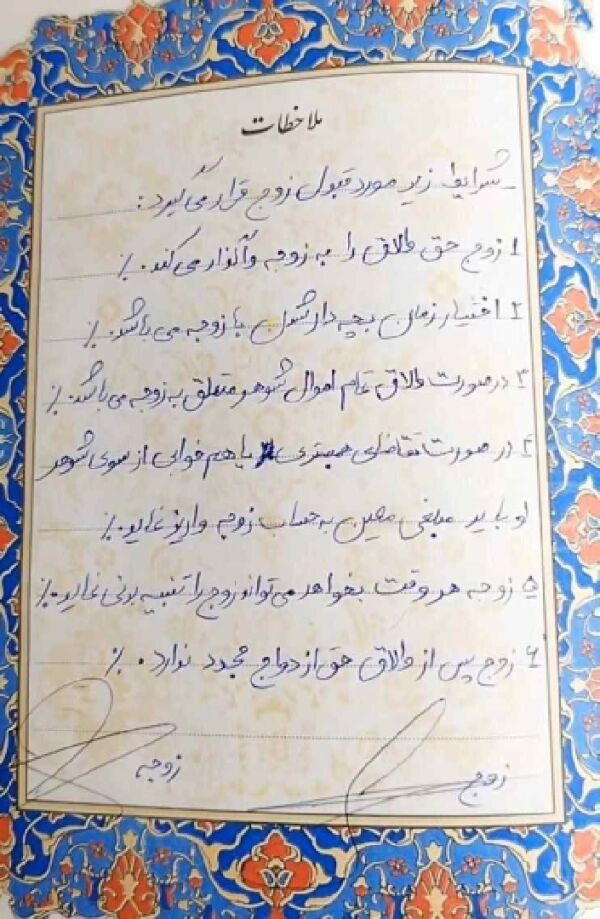 ملاحظات
شرایط زیر مورد قبول زوج قرار می گیرد:
۱ زوج حق طلاق را به زوجه واگذار می کند. ٪
۲ اختیار زمان بچه دار شدن با زوجه می باشد. ٪
۳ در صورت طلاق تمام اموال شوهر متعلق به زوجه می باشد. ٪
۴ در صورت تقاضای همبستری یا هم خوابی از سوی شوهر
او باید مبلغی معین به حساب زوجه واریز نماید. ٪
۵ زوجه هر وقت بخواهد می تواند زوج را تنبیه بدنی نماید. ٪
۶ زوج پس از طلاق حق ازدواج مجدد ندارد. ٪
زوج زوجه